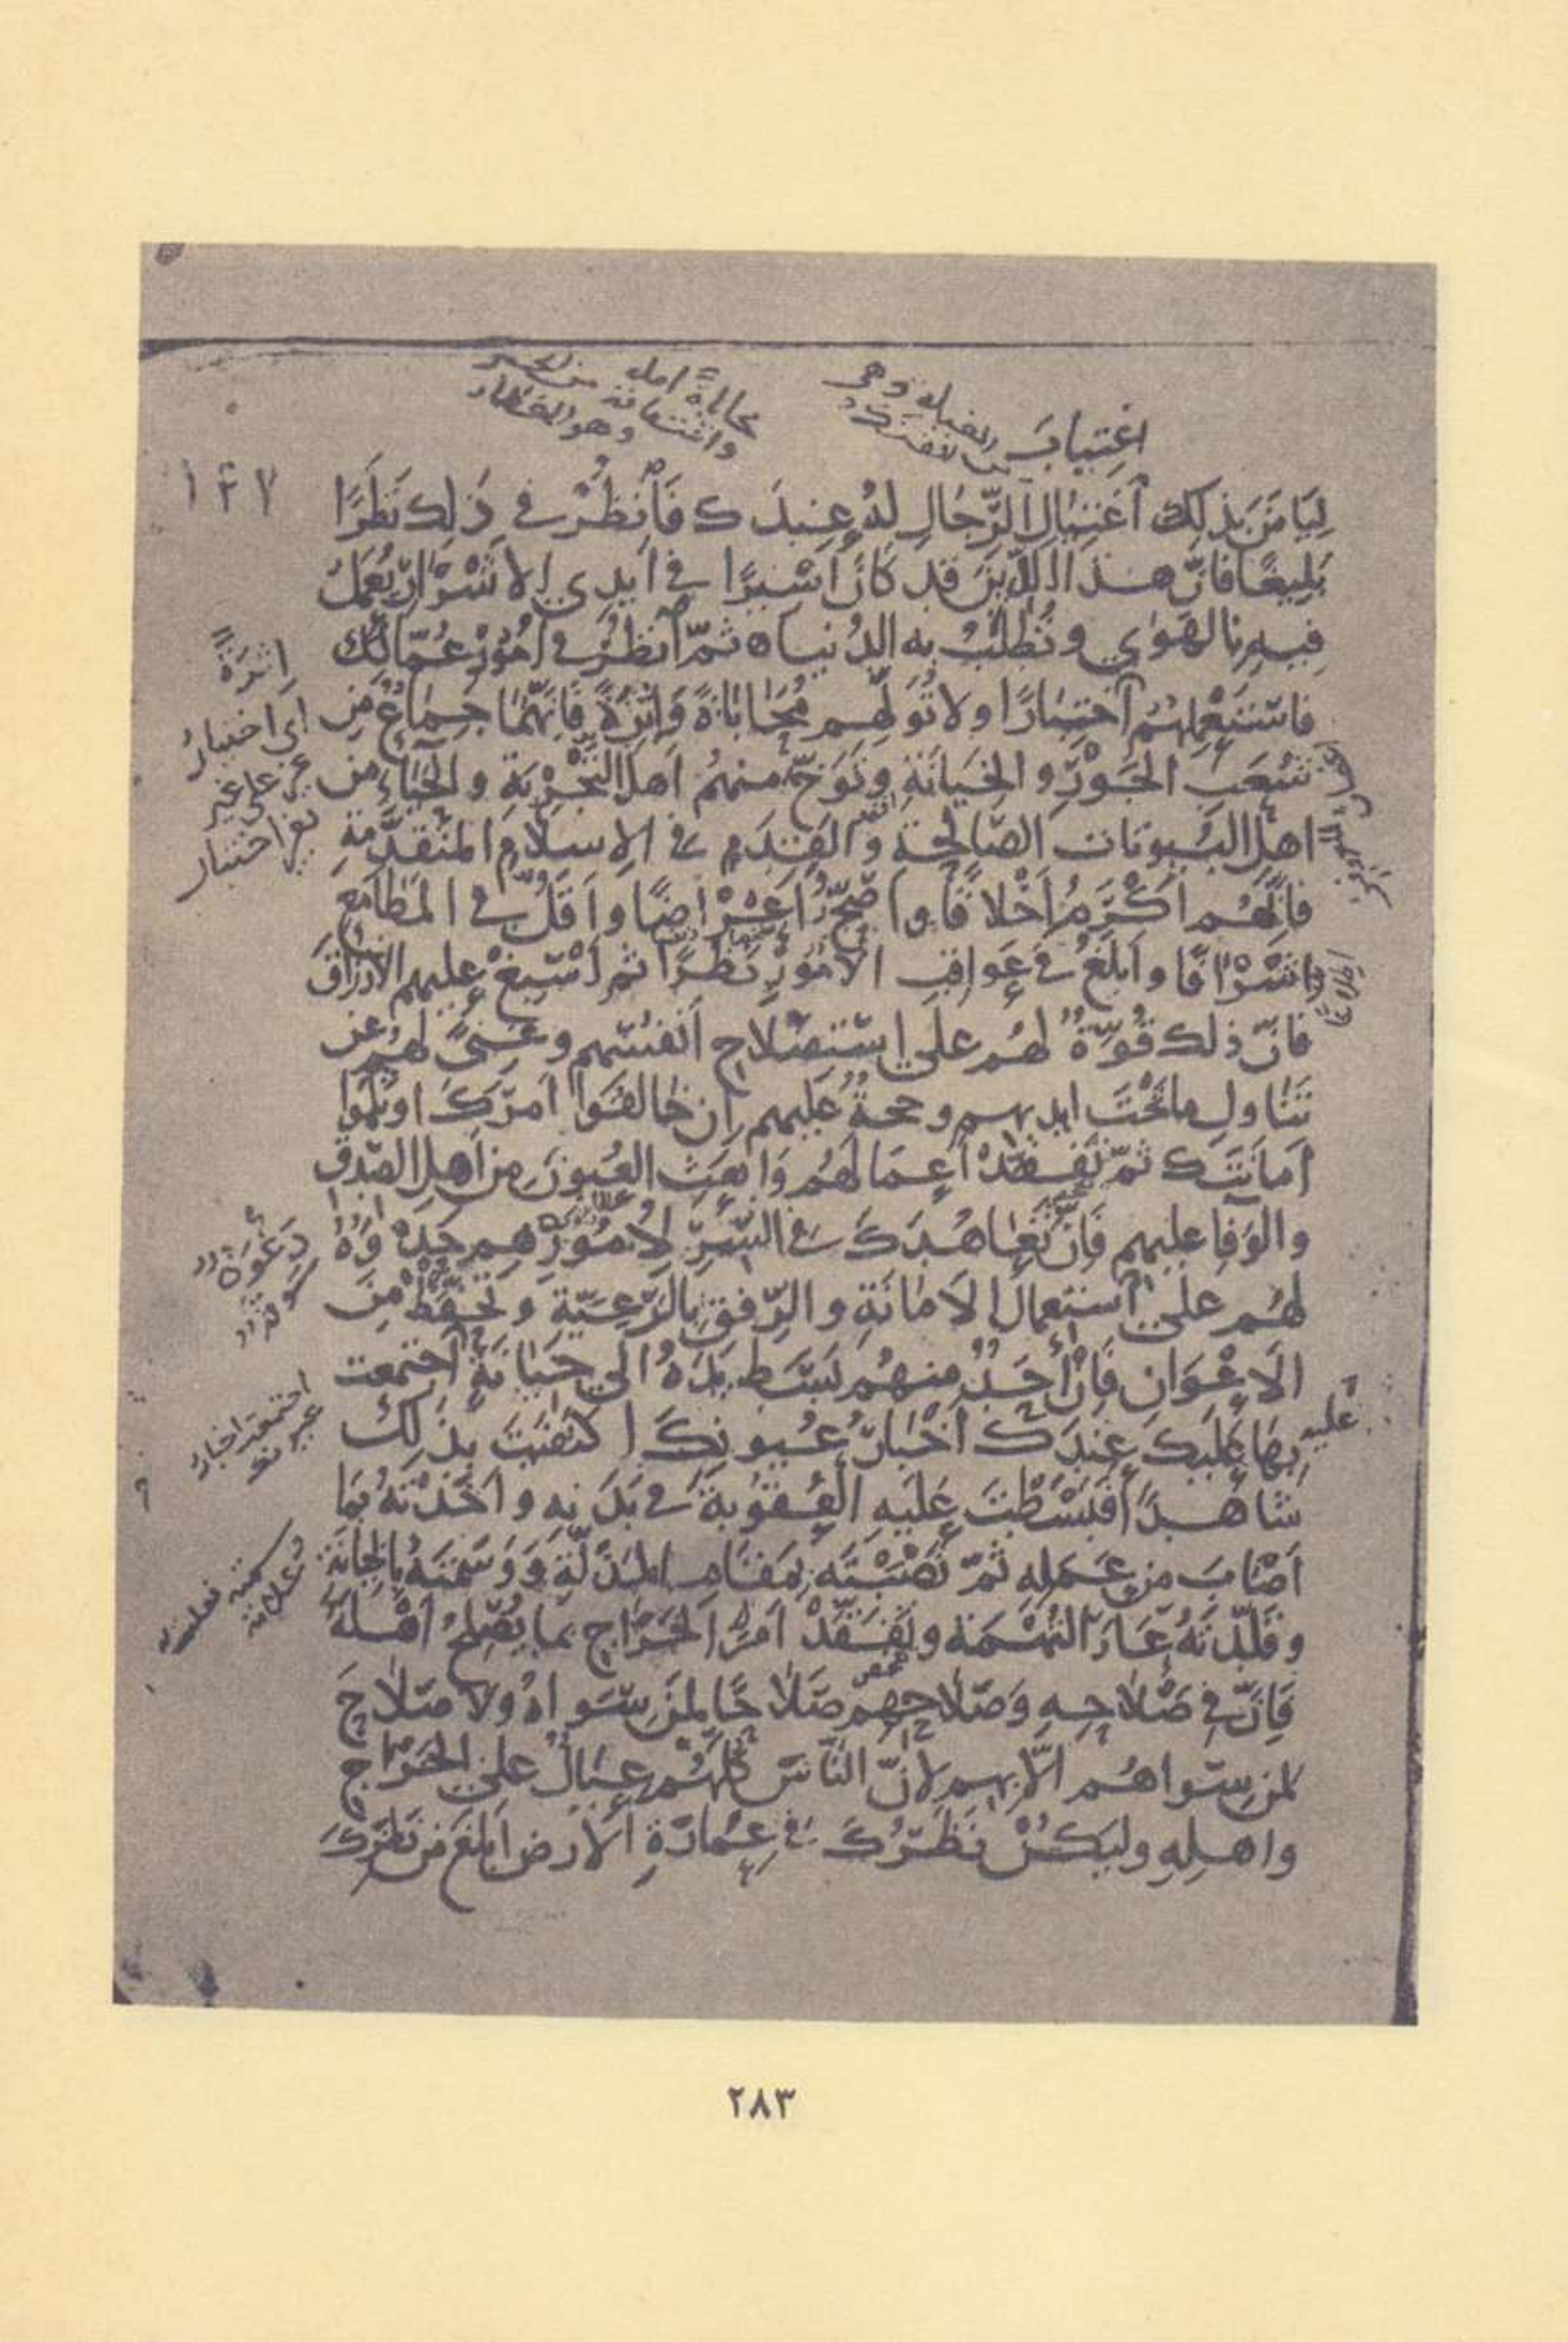 اغتياب
١٢٧
لِيَأمَنَ بذلك اغتيال الرِّجالِ لهُ عندَك فَانْظُرْ في ذلك نَظَرًا
بَلِيغًا فانّ هذا الدِّينَ قد كَانَ أَسيرًا في أيدي الاشْرارِ يُعمَلُ
فيهِ بالهَوى وتُطلَبُ به الدُنيا ثمّ انظُرْ في أمُورِ عُمّالك
فاستَعمِلهُم اختِبارًا ولا تُوَلِّهم مُحَاباةً وَاثَرَةً فَإنّهما جِماعٌ مِن
شُعَبِ الجَورِ والخِيانَةِ وتَوَخَّ منهمُ أهلَ التَّجرِبَةِ والحَياءِ من
اهلِ البُيُوتاتِ الصّالِحَةِ والقَدَمِ في الإسلامِ المتَقَدِّمَةِ
فانَّهُم أَكْرَمُ أَخْلاقًا وأصَحُّ أعْرَاضًا وأقَلُّ في المَطامعِ
اشْرَافًا وأبلَغُ في عَواقِبِ الأمُورِ نَظَرًا ثم أسْبِغْ عليهم الأرزاقَ
فانّ ذلك قُوّةٌ لهُم على استِصلاحِ أنفُسِهم وغِنىً لهُم عن
تَنَاوُلِ ما تحْتَ ايديهم وحجةٌ عليهم إن خالَفُوا أمرَكَ أو ثلَموا
أمانَتَك ثمّ تَفَقَّدْ أعمَالَهُم وَابعَثِ العُيونَ مِن أهلِ الصّدقِ
والوَفا عليهم فَإنّ تَعاهُدَكَ في السِّرِّ لأمُورِهِم حَدْوَةٌ
لهُم على استعمال الأمانَةِ والرِّفقِ بالرَّعِيَّةِ وتَحَفَّظْ مِنَ
الأعْوَانِ فَإنْ أَحَدٌ منهُم بَسَطَ يَدَهُ الى خِيانَةٍ اجتمعت
بها عليك عِندَك أخْبارُ عُيونِكَ اكتَفَيتَ بذلك
شاهدًا فَبَسَطْتَ عَلَيهِ العُقُوبَةَ في بَدَنِهِ وأخَذْتَهُ بما
أصَابَ من عَمَلِهِ ثمّ نَصَبْتَه بمَقامِ المذَلّةِ وَوَسَمتَهُ بالخيانَةِ
وقَلَّدتَهُ عَارَ التُّهمَةِ وتَفَقَّدْ أمرَ الخَرَاجِ بما يُصلِحُ أهْلَهُ
فَإنّ في صَلاحِهِ وَصَلاحِهِم صَلاحًا لمنْ سِواهُم ولا صَلاحَ
لمن سِواهُم الّا بهم لأنّ النّاسَ كُلَّهُم عِيالٌ على الخَراجِ
واهلِهِ وليكُنْ نَظَرُكَ في عِمارَةِ الأرضِ أبلَغَ من نَظَرِكَ
اثرَةً
اي اختيارُ
دَعْوَةٌ
عليه
٢٨٣